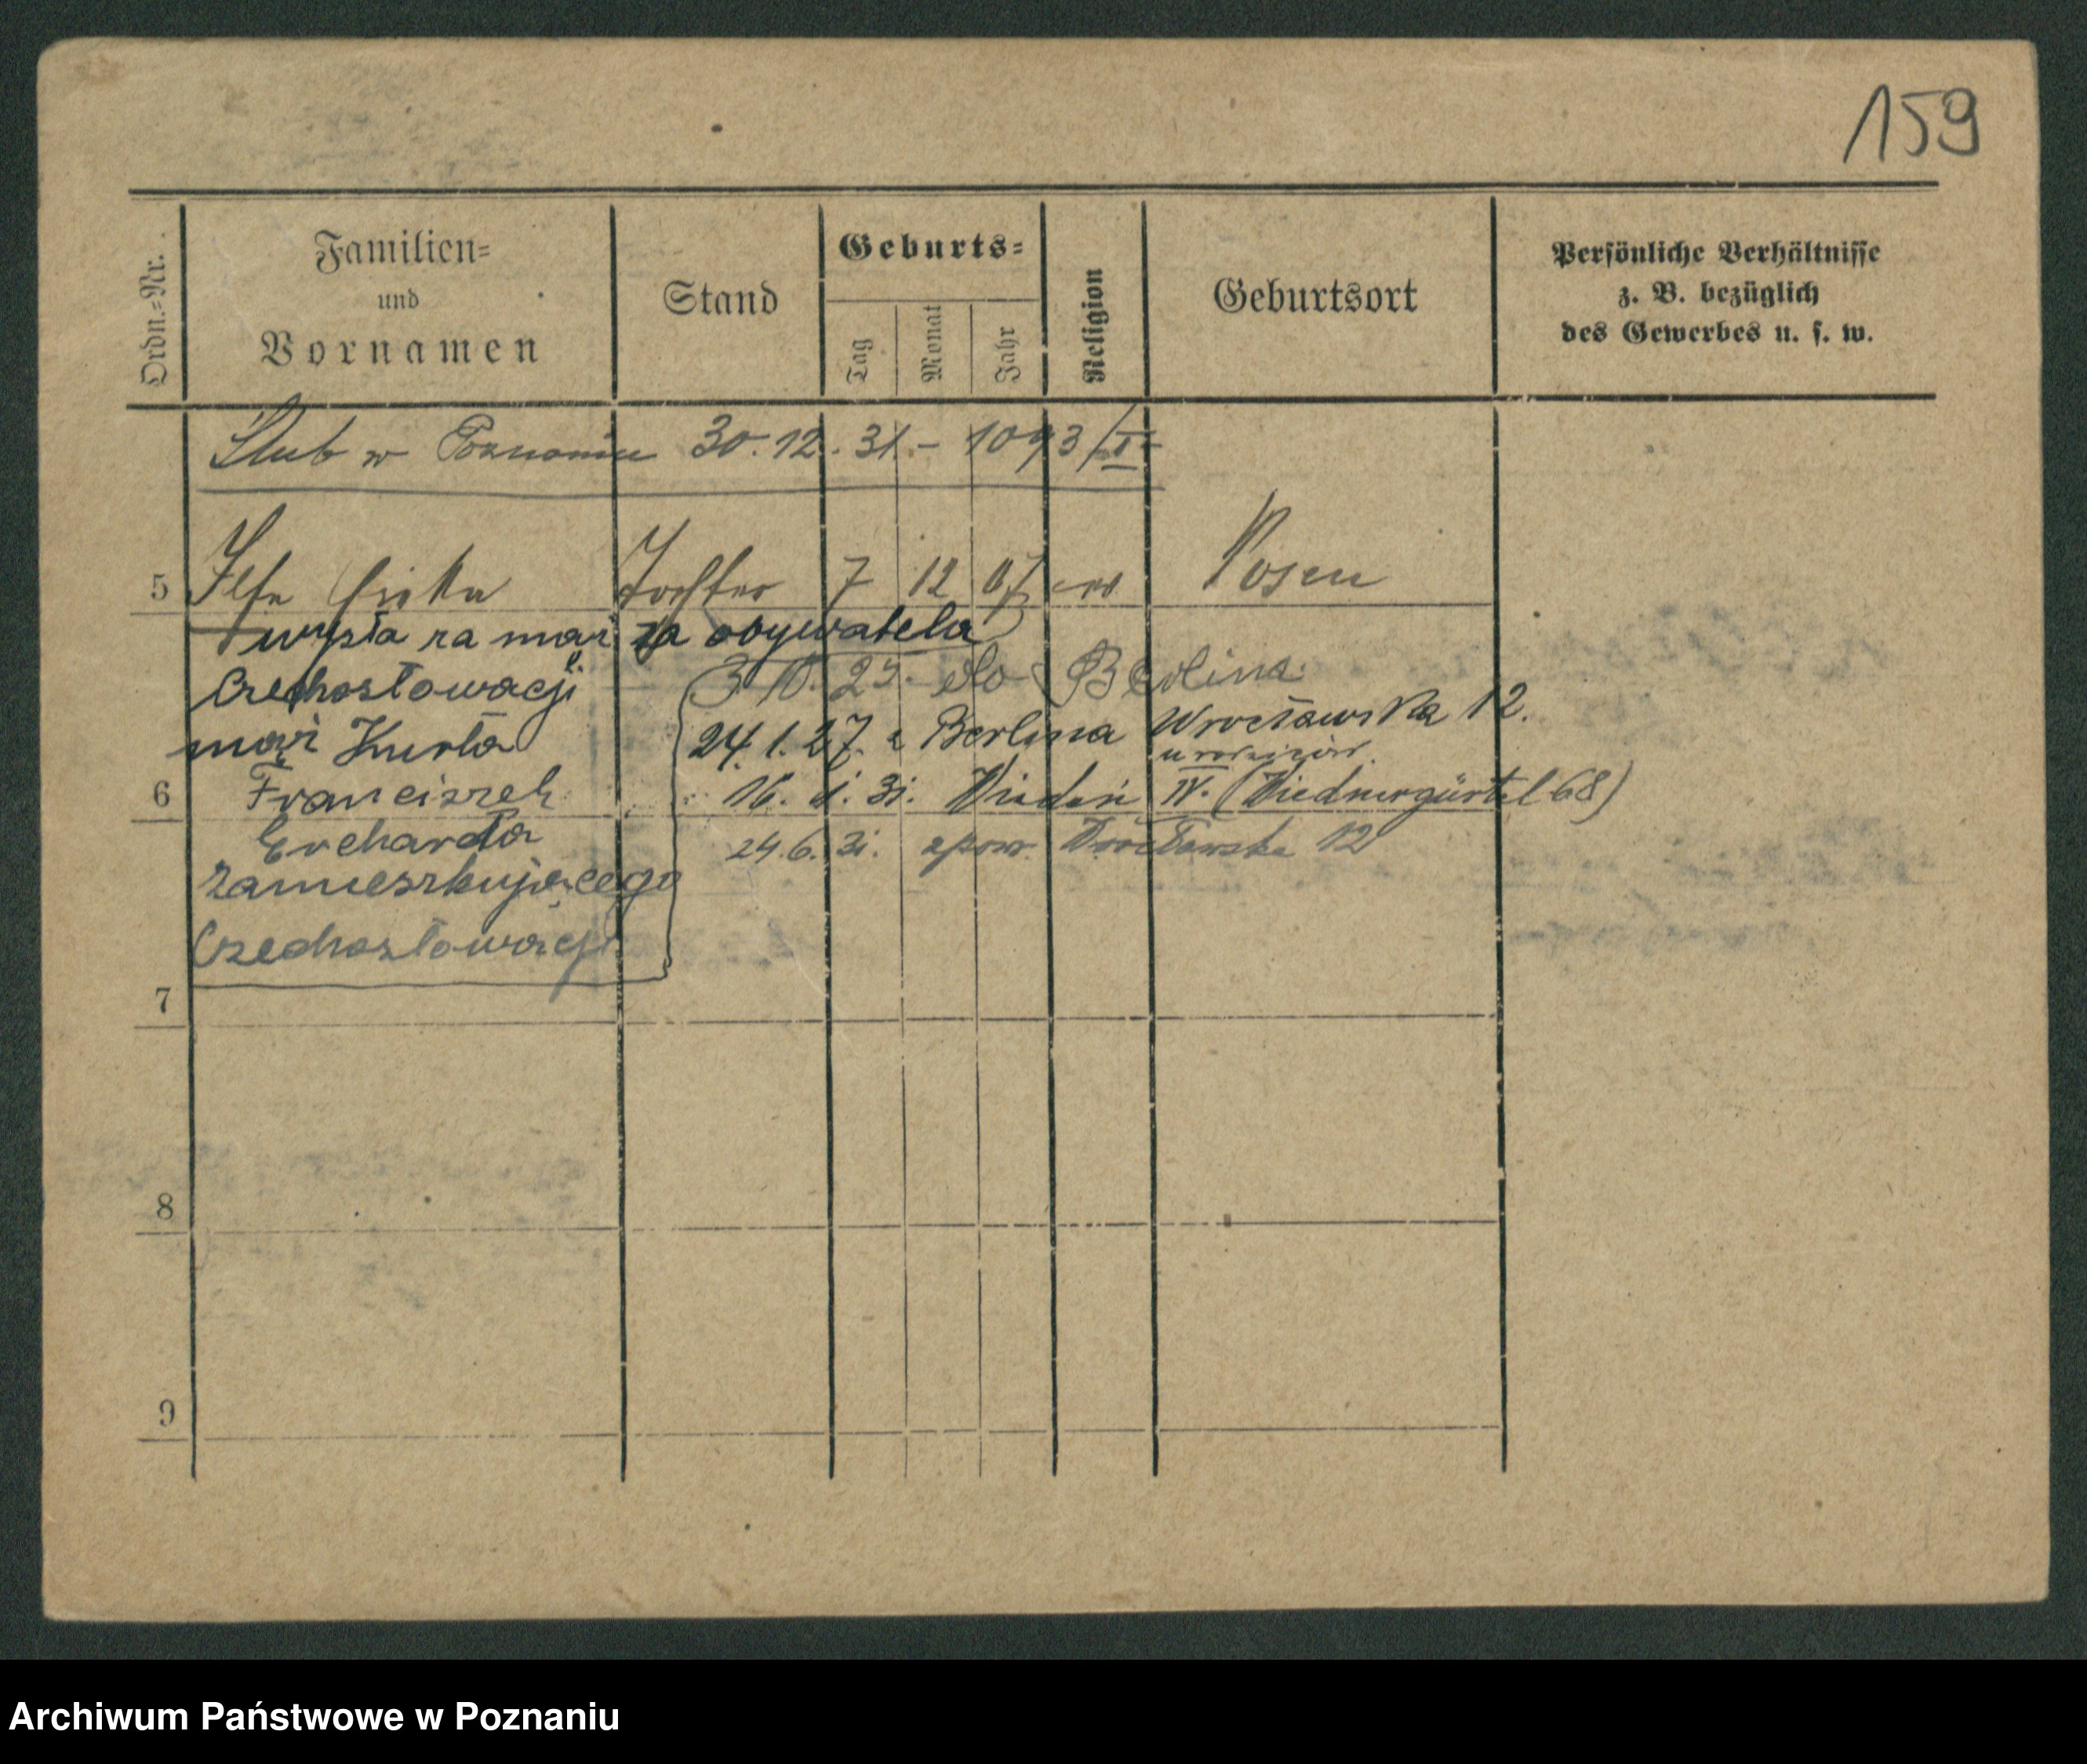 159
Ordn.=Nr.
Familien=
und
Vornamen
Stand
Geburts=
Tag
Monat
Jahr
Religion
Geburtsort
Persönliche Verhältnisse
z. B. bezüglich
des Gewerbes u. s. w.
Ślub w Poznaniu 30.12.31.– 1093/I
5 Ilse Tochter 7 12 07 Posen
wyszła za mąż za obywatela
Czechosłowacji
3 10. 25. do Berlina
mąż Kurta
24.1.27. z Berlina Wrocławska 12.
6 Franciszek
16. 1. 31. Wiedeń IV. (Wiednergürtel 68)
Ercharda
24.6.31. spow. Wrocławska 12
zamieszkującego
Czechosłowacji
7
8
9
Archiwum Państwowe w Poznaniu